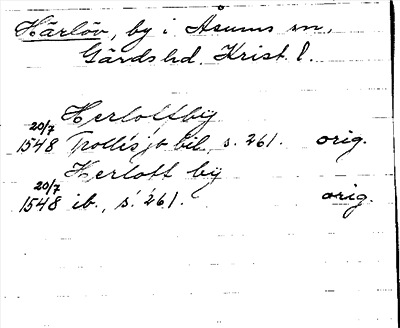 Härlöv, by i Åsums sn,
Gärds hd. Krist. l.
Herloffby
20/7 1548 Trolles jb. bil., s. 261. orig.
Herloff by
20/7 1548 ib., s. 261. orig.